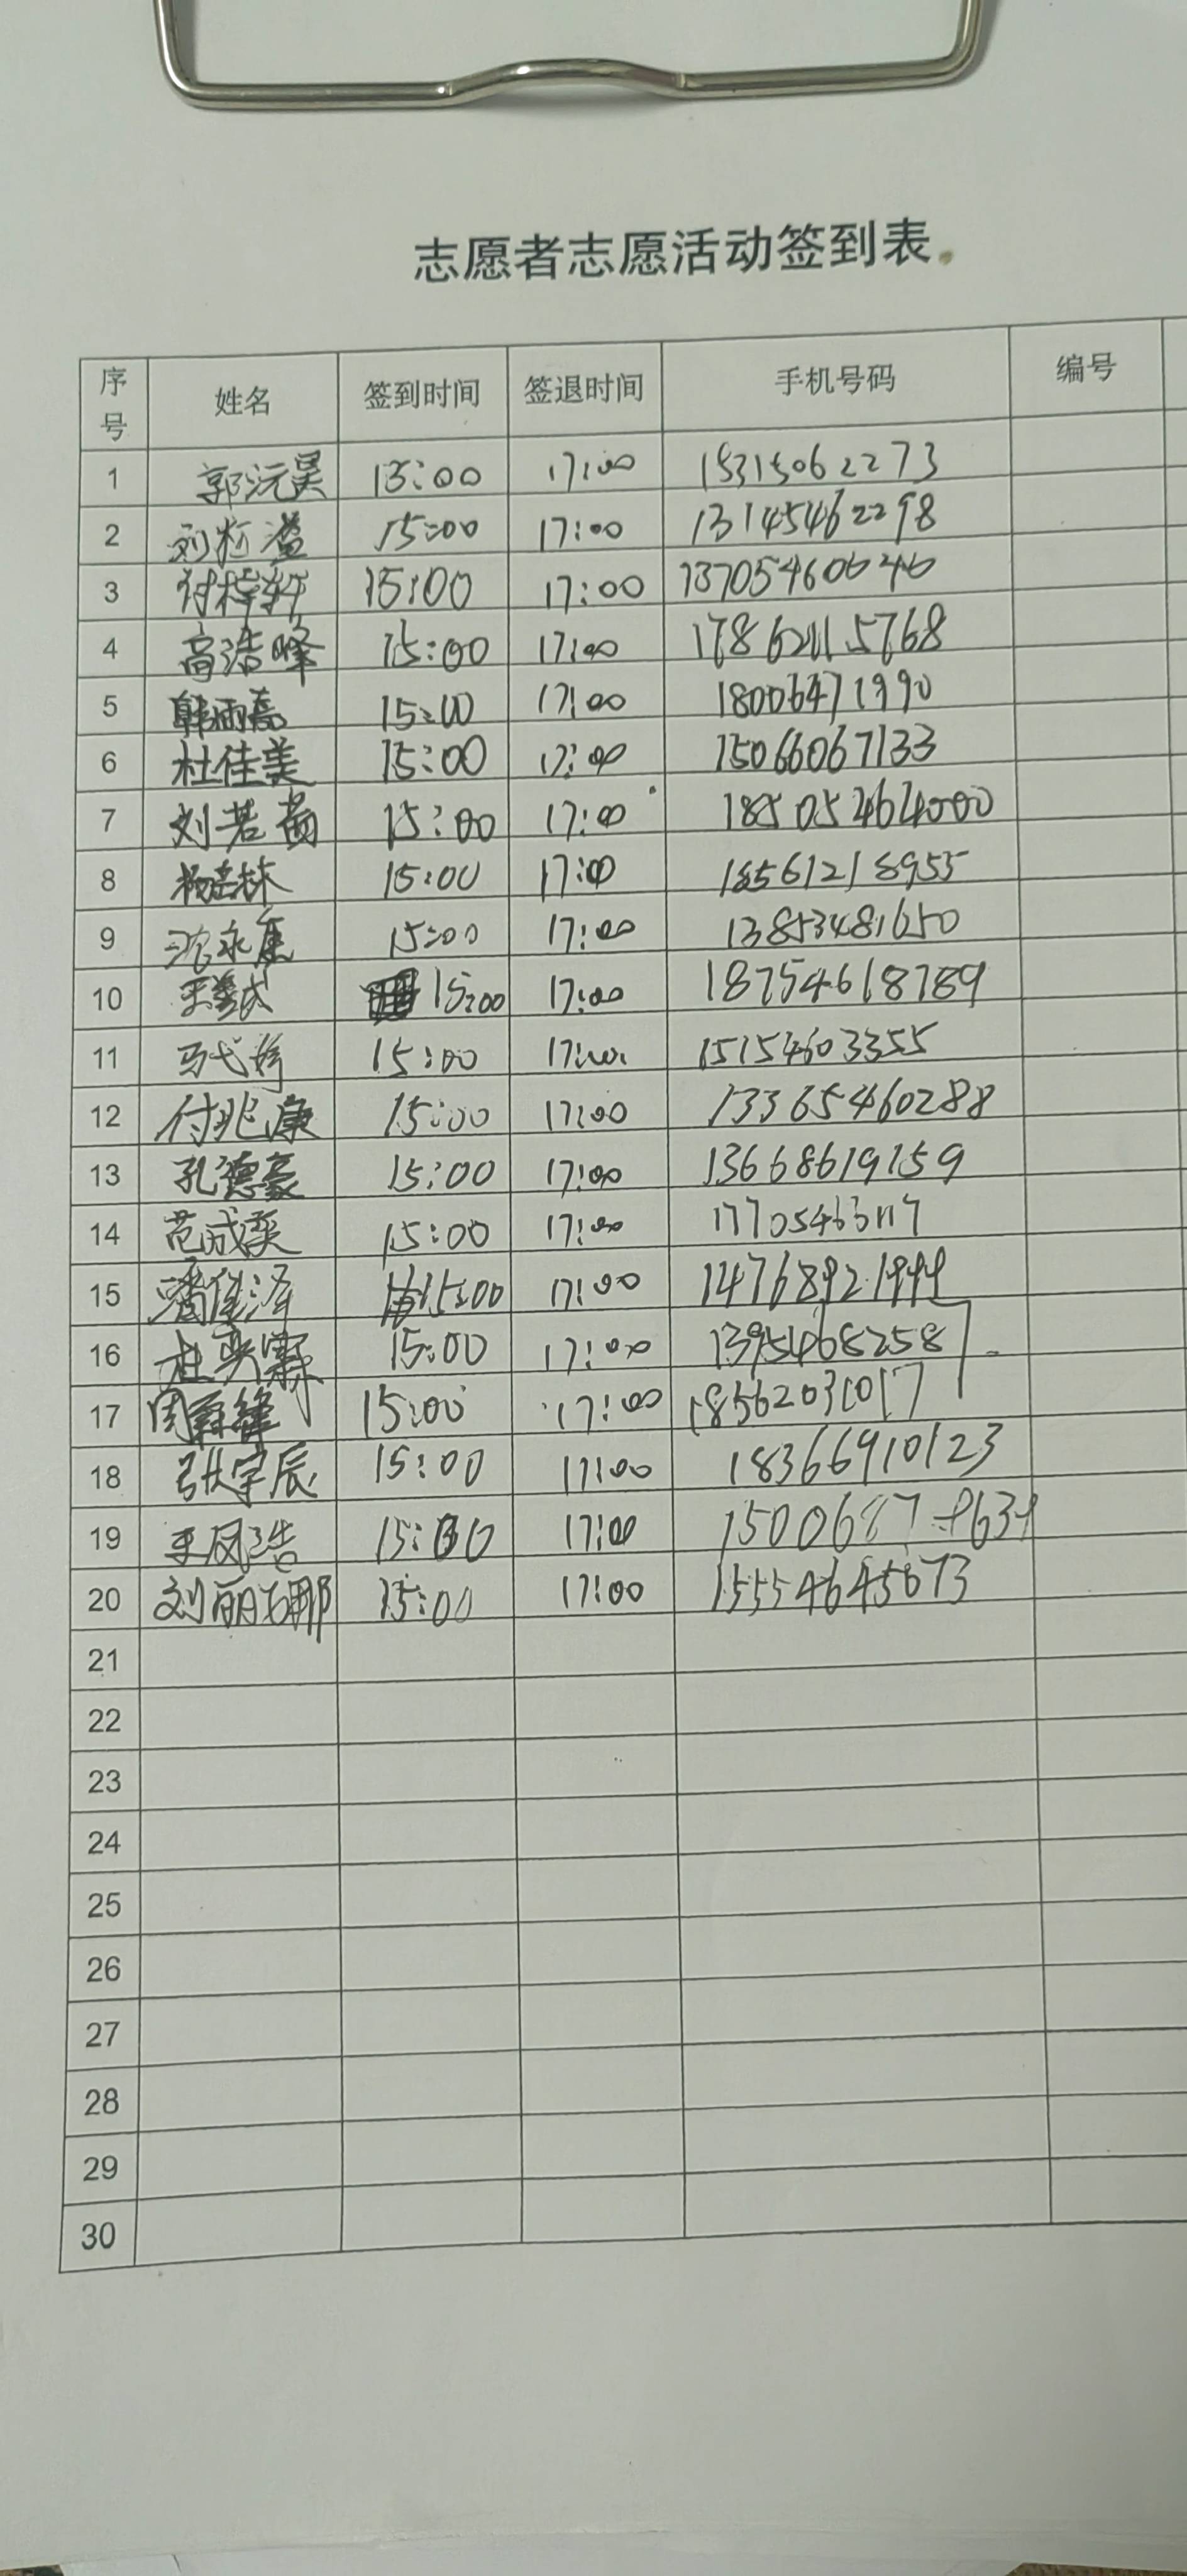 志愿者志愿活动签到表
序号 姓名 签到时间 签退时间 手机号码 编号
1 郭沅昊 15:00 17:00 15315062273
2 刘 15:00 17:00 13145462298
3 付梓轩 15:00 17:00 13705460646
4 高浩峰 15:00 17:00 17862115768
5 韩雨 15:00 17:00 18006471990
6 杜佳美 15:00 17:00 15066067133
7 刘若 15:00 17:00 18505464000
8 杨 15:00 17:00 18561218955
9 15:00 17:00 13853481650
10 15:00 17:00 18754618789
11 马 15:00 17:00 15154603355
12 付兆康 15:00 17:00 13365460288
13 孔德豪 15:00 17:00 13668619159
14 范成奕 15:00 17:00 17705463117
15 潘佳泽 15:00 17:00 14768921999
16 杜奕霖 15:00 17:00
17 周 15:00 17:00 18562031017
18 张宇辰 15:00 17:00 18366910123
19 王凤浩 15:00 17:00
20 刘丽娜 15:00 17:00 15554645673
21
22
23
24
25
26
27
28
29
30